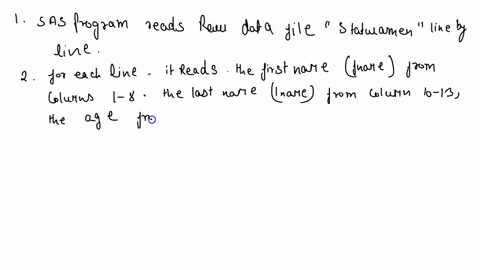 1. SAS Program reads Raw data file "Statwamen" line by
line.
2. for each line. it Reads. the first name (fname) from
Columns 1-8. the last name (lname) from column 10-13,
the age fro